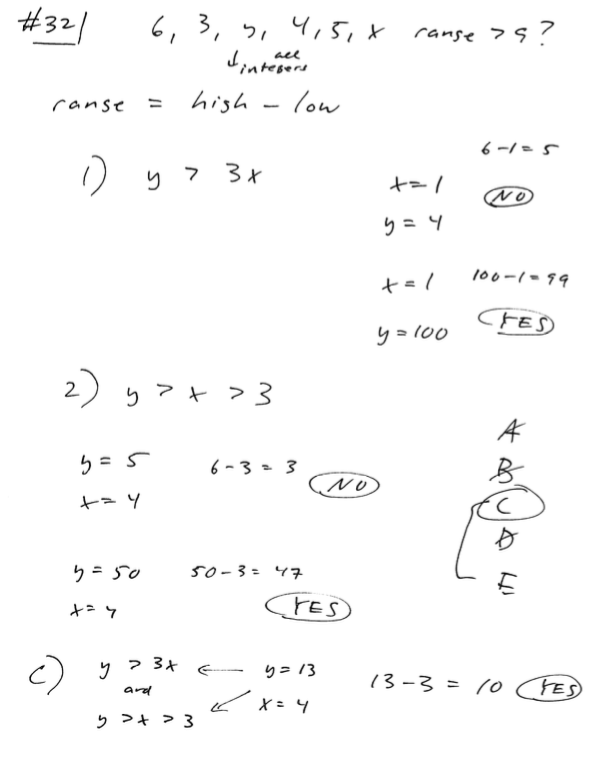 #32/ 6, 3, y, 4, 5, x range > 9?
↓ all integers
range = high - low
1) y > 3x
x=1 6-1=5
y=4 NO
x=1 100-1=99
y=100 YES
2) y > x > 3
y=5 6-3=3 NO
x=4
y=50 50-3=47
x=4 YES
A
B
C
D
E
C) y > 3x ← y=13 13-3=10 YES
and
y > x > 3 ↙ x=4